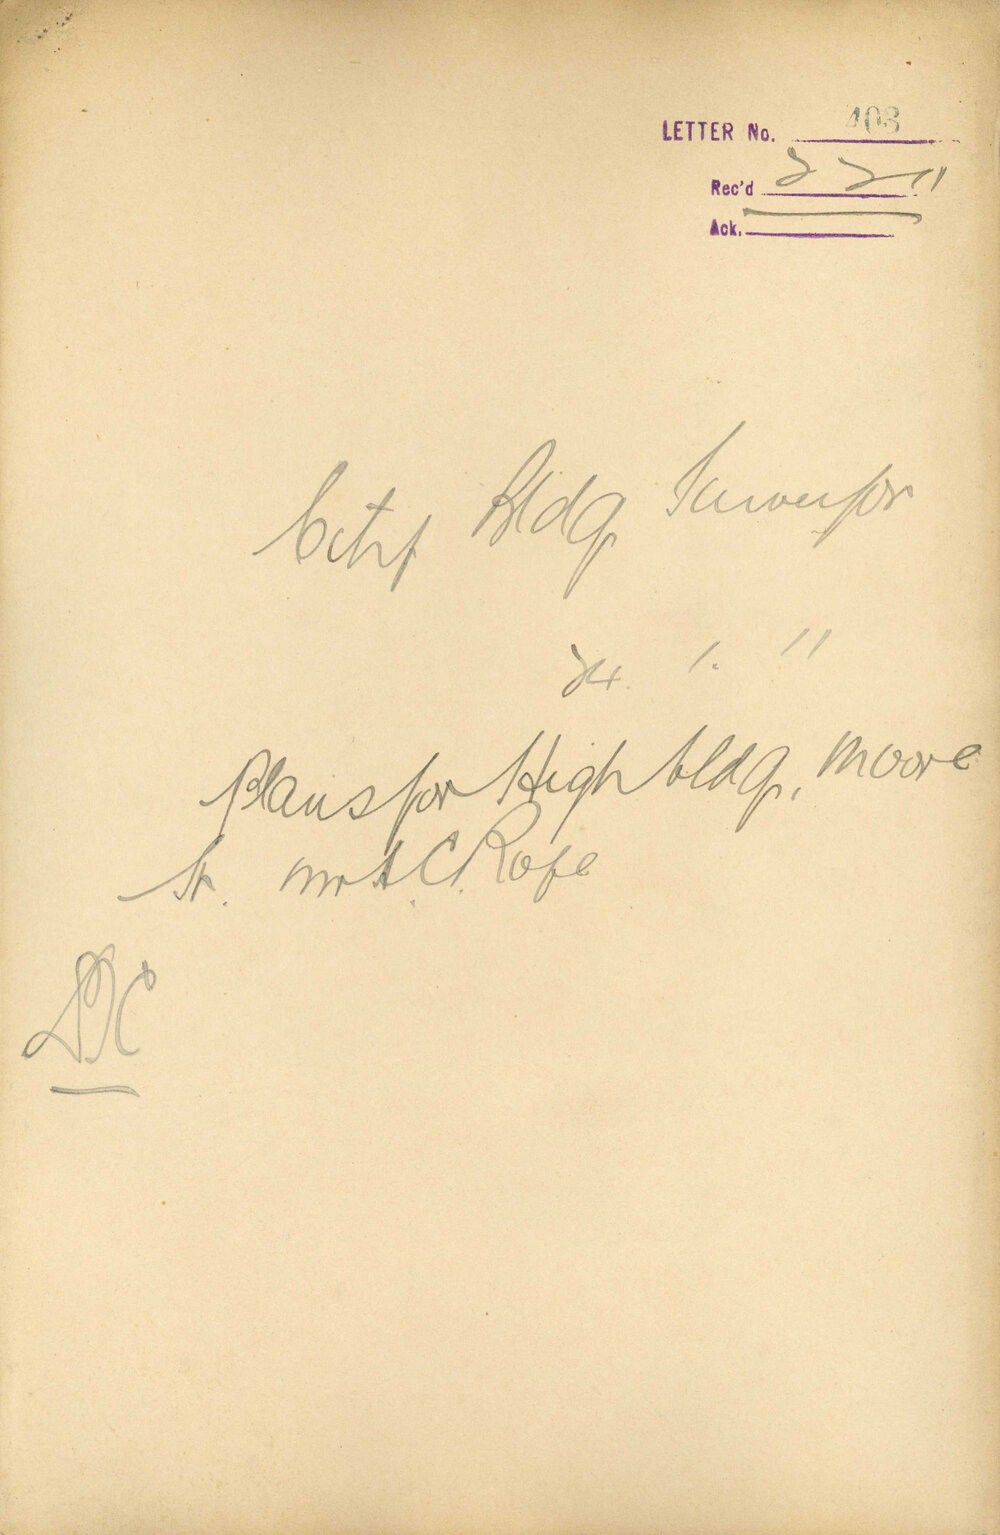 LETTER No. 403
Rec'd 2 2 11
Ack.
City Bldg Surveyor
24 1. 11
Plans for High bldg, Moore
St. Mr A. C. Rofe